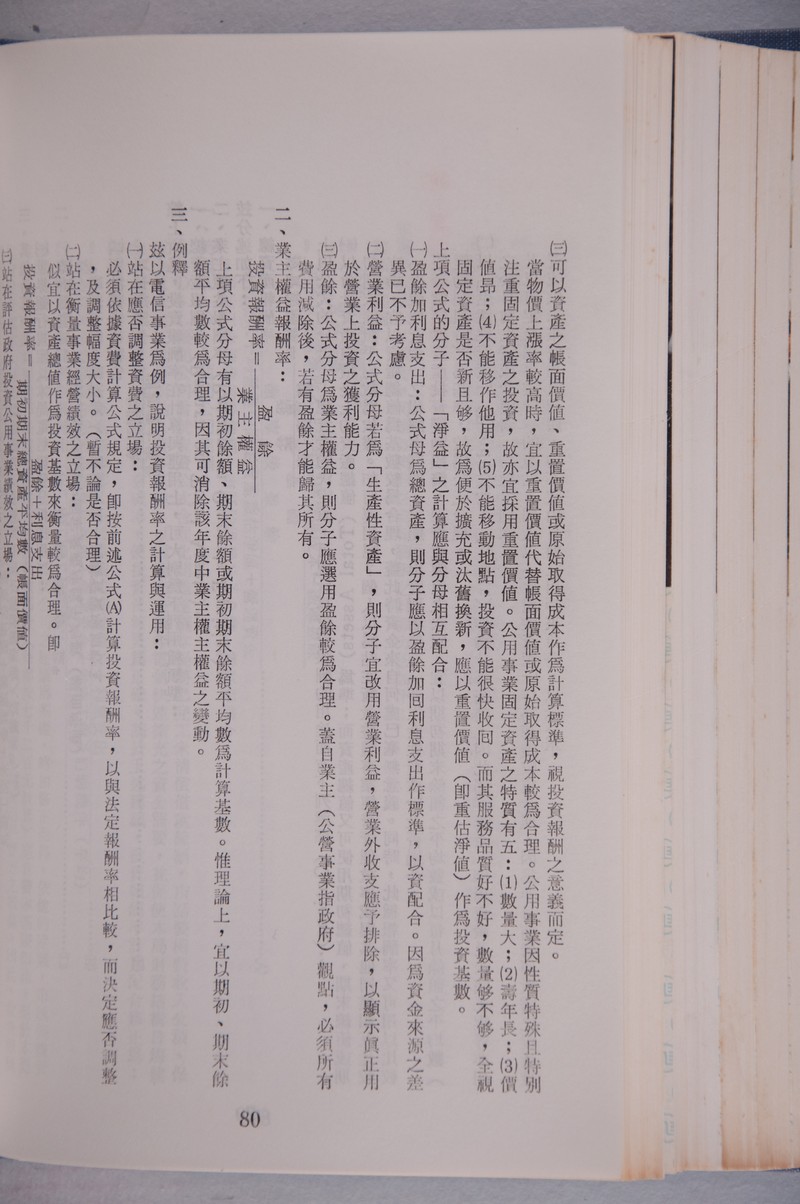 ㈢可以資產之帳面價值、重置價值或原始取得成本作為計算標準，視投資報酬之意義而定。
當物價上漲率較高時，宜以重置價值代替帳面價值或原始取得成本較為合理。公用事業因性質特殊且特別
注重固定資產之投資，故亦宜採用重置價值。公用事業固定資產之特質有五：⑴數量大；⑵壽年長；⑶價
值昂；⑷不能移作他用；⑸不能移動地點，投資不能很快收囘。而其服務品質好不好，數量够不够，全視
固定資產是否新且够，故為便於擴充或汰舊換新，應以重置價值（卽重估淨值）作為投資基數。
上項公式的分子——「淨益」之計算應與分母相互配合：
㈠盈餘加利息支出：公式母為總資產，則分子應以盈餘加囘利息支出作標準，以資配合。因為資金來源之差
異已不予考慮。
㈡營業利益：公式分母若為「生產性資產」，則分子宜改用營業利益，營業外收支應予排除，以顯示眞正用
於營業上投資之獲利能力。
㈢盈餘：公式分母為業主權益，則分子應選用盈餘較為合理。蓋自業主（公營事業指政府）觀點，必須所有
費用減除後，若有盈餘才能歸其所有。
二、業主權益報酬率：
投資報酬率＝盈餘
業主權益
上項公式分母有以期初餘額、期末餘額或期初期末餘額平均數為計算基數。惟理論上，宜以期初、期末餘
額平均數較為合理，因其可消除該年度中業主權主權益之變動。
三、例釋
玆以電信事業為例，說明投資報酬率之計算與運用：
㈠站在應否調整資費之立場：
必須依據資費計算公式規定，卽按前述公式(A)計算投資報酬率，以與法定報酬率相比較，而決定應否調整
，及調整幅度大小。（暫不論是否合理）
㈡站在衡量事業經營績效之立場：
似宜以資產總值作為投資基數來衡量較為合理。卽
投資報酬率＝盈餘＋利息支出
期初期末總資產平均數（帳面價值）
㈢站在評估政府投資公用事業績效之立場：
80